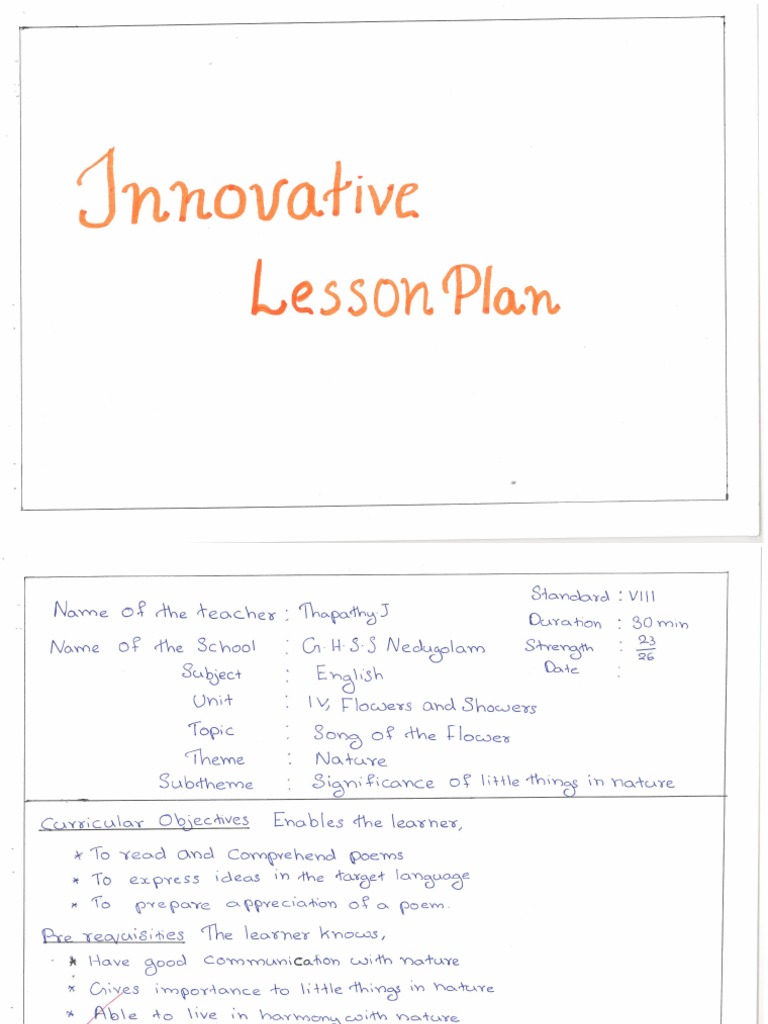 Innovative
Lesson Plan
Name of the teacher : Thapathy.J
Standard : VIII
Duration : 30 min
Name of the School : G.H.S.S Nedugolam
Strength : 23/26
Subject : English
Date :
Unit : IV, Flowers and Showers
Topic : Song of the Flower
Theme : Nature
Subtheme : Significance of little things in nature
Curricular Objectives Enables the learner,
* To read and comprehend poems
* To express ideas in the target language
* To prepare appreciation of a poem.
Pre requisities The learner knows,
* Have good communication with nature
* Gives importance to little things in nature
* Able to live in harmony with nature